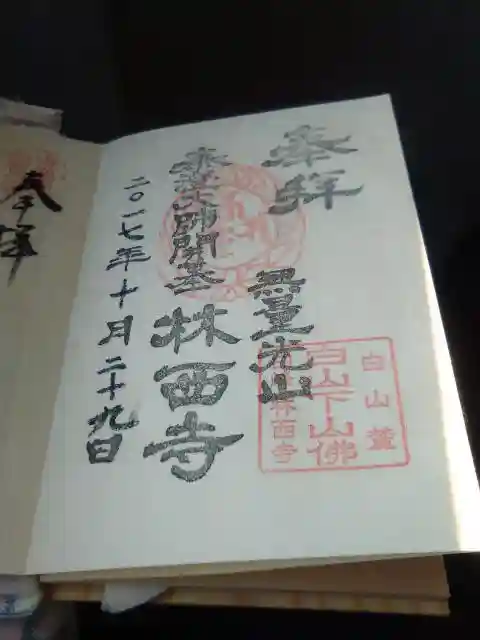 奉拝
無量光山
泰澄大師開基
林西寺
二〇一七年十月二十九日
白山麓
白山下山佛
林西寺
奉拝